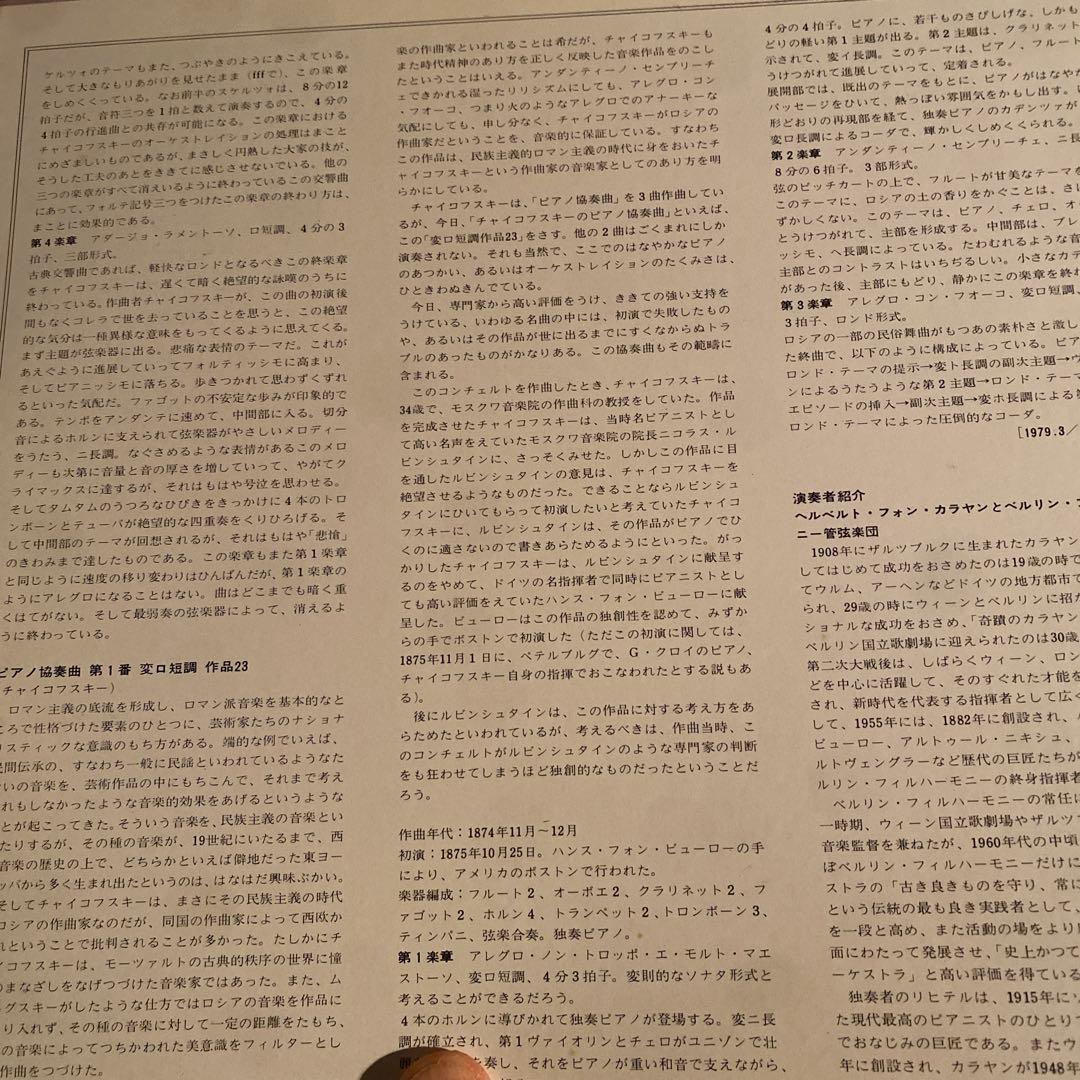 ケルツォのテーマもまた、つぶやきのようにきこえている。
そして大きなもりあがりを見せたまま（fffで）、この楽章
をしめくくっている。なお前半のスケルツォは、8分の12
拍子だが、音符三つを1拍と数えて演奏するので、4分の
4拍子の行進曲との共存が可能になる。この楽章における
チャイコフスキーのオーケストレイションの処理はまこと
にめざましいものであるが、まさしく円熟した大家の技が、
そうした工夫のあとをきさてに感じさせないでいる。他の
三つの楽章がすべて消えいるように終わっているこの交響曲
にあって、フォルテ記号三つをつけたこの楽章の終わり方は、
まことに効果的である。
第4楽章　アダージョ・ラメントーソ、ロ短調、4分の3
拍子、三部形式。
古典交響曲であれば、軽快なロンドとなるべきこの終楽章
をチャイコフスキーは、遅くて暗く絶望的な詠嘆のうちに
終わっている。作曲者チャイコフスキーが、この曲の初演後
間もなくコレラで世を去っていることを思うと、この絶望
的な気分は一種異様な意味をもってくるように思えてくる。
まず主題が弦楽器に出る。悲痛な表情のテーマだ。これが
あえぐように進展していってフォルティッシモに高まり、
そしてピアニッシモに落ちる。歩きつかれて思わずくずれ
るといった気配だ。ファゴットの不安定な歩みが印象的で
ある。テンポをアンダンテに速めて、中間部に入る。切分
音によるホルンに支えられて弦楽器がやさしいメロディー
をうたう、ニ長調。なぐさめるような表情があるこのメロ
ディーも次第に音量と音の厚さを増していって、やがてク
ライマックスに達するが、それはもはや号泣を思わせる。
そしてタムタムのうつろなひびきをきっかけに4本のトロ
ンボーンとテューバが絶望的な四重奏をくりひろげる。そ
して中間部のテーマが回想されるが、それはもはや「悲愴」
のきわみまで達したものである。この楽章もまた第1楽章
と同じように速度の移り変わりはひんぱんだが、第1楽章の
ようにアレグロになることはない。曲はどこまでも暗く重
くはてがない。そして最弱奏の弦楽器によって、消えるよ
うに終わっている。
ピアノ協奏曲 第1番 変ロ短調 作品23
チャイコフスキー）
ロマン主義の底流を形成し、ロマン派音楽を基本的なと
ころで性格づけた要素のひとつに、芸術家たちのナショナ
リスティックな意識のもち方がある。端的な例でいえば、
民間伝承の、すなわち一般に民謡といわれているようなた
いの音楽を、芸術作品の中にもちこんで、それまで考え
れもしなかったような音楽的効果をあげるというような
とが起こってきた。そういう音楽を、民族主義の音楽とい
たりするが、その種の音楽が、19世紀にいたるまで、西
音楽の歴史の上で、どちらかといえば僻地だった東ヨー
ッパから多く生まれ出たというのは、はなはだ興味ぶかい。
そしてチャイコフスキーは、まさにその民族主義の時代
ロシアの作曲家なのだが、同国の作曲家によって西欧か
れということで批判されることが多かった。たしかにチ
イコフスキーは、モーツァルトの古典的秩序の世界に憧
のまなざしをなげつづけた音楽家ではあった。また、ム
グスキーがしたような仕方ではロシアの音楽を作品に
り入れず、その種の音楽に対して一定の距離をたもち、
の音楽によってつちかわれた美意識をフィルターとし
作曲をつづけた。
楽の作曲家といわれることは希だが、チャイコフスキーも
また時代精神のあり方を正しく反映した音楽作品をのこし
たということはいえる。アンダンティーノ・センプリーチ
ェできかれる湿ったリリシズムにしても、アレグロ・コン
・フオーコ、つまり火のようなアレグロでのアナーキーな
気配にしても、申し分なく、チャイコフスキーがロシアの
作曲家だということを、音楽的に保証している。すなわち
この作品は、民族主義的ロマン主義の時代に身をおいたチ
ャイコフスキーという作曲家の音楽家としてのあり方を明
らかにしている。
チャイコフスキーは、「ピアノ協奏曲」を3曲作曲してい
るが、今日、「チャイコフスキーのピアノ協奏曲」といえば、
この「変ロ短調作品23」をさす。他の2曲はごくまれにしか
演奏されない。それも当然で、ここでのはなやかなピアノ
のあつかい、あるいはオーケストレイションのたくみさは、
ひときわぬきんでている。
今日、専門家から高い評価をうけ、ききての強い支持を
うけている、いわゆる名曲の中には、初演で失敗したもの
や、あるいはその作品が世に出るまでにすくなからぬトラ
ブルのあったものがかなりある。この協奏曲もその範疇に
含まれる。
このコンチェルトを作曲したとき、チャイコフスキーは、
34歳で、モスクワ音楽院の作曲科の教授をしていた。作品
を完成させたチャイコフスキーは、当時名ピアニストとし
て高い名声をえていたモスクワ音楽院の院長ニコラス・ル
ビンシュタインに、さっそくみせた。しかしこの作品に目
を通したルビンシュタインの意見は、チャイコフスキーを
絶望させるようなものだった。できることならルビンシュ
タインにひいてもらって初演したいと考えていたチャイコ
フスキーに、ルビンシュタインは、その作品がピアノでひ
くのに適さないので書きあらためるようにといった。がっ
かりしたチャイコフスキーは、ルビンシュタインに献呈す
るのをやめて、ドイツの名指揮者で同時にピアニストとし
ても高い評価をえていたハンス・フォン・ビューローに献
呈した。ビューローはこの作品の独創性を認めて、みずか
らの手でボストンで初演した（ただこの初演に関しては、
1875年11月1日に、ペテルブルグで、G・クロイのピアノ、
チャイコフスキー自身の指揮でおこなわれたとする説もあ
る）。
後にルビンシュタインは、この作品に対する考え方をあ
らためたといわれているが、考えるべきは、作曲当時、こ
のコンチェルトがルビンシュタインのような専門家の判断
をも狂わせてしまうほど独創的なものだったということだ
ろう。
作曲年代：1874年11月～12月
初演：1875年10月25日。ハンス・フォン・ビューローの手
により、アメリカのボストンで行われた。
楽器編成：フルート2、オーボエ2、クラリネット2、フ
ァゴット2、ホルン4、トランペット2、トロンボーン3、
ティンパニ、弦楽合奏。独奏ピアノ。
第1楽章　アレグロ・ノン・トロッポ・エ・モルト・マエ
ストーソ、変ロ短調、4分3拍子。変則的なソナタ形式と
考えることができるだろう。
4本のホルンに導びかれて独奏ピアノが登場する。変ニ長
調が確立され、第1ヴァイオリンとチェロがユニゾンで壮
を奏し、それをピアノが重い和音で支えながら、
4分の4拍子。ピアノに、若干ものさびしげな、しかも
どりの軽い第1主題が出る。第2主題は、クラリネット
示されて、変イ長調。このテーマは、ピアノ、フルート
うけつがれて進展していって、定着される。
展開部では、既出のテーマをもとに、ピアノがはなやか
パッセージをひいて、熱っぽい雰囲気をかもし出す。
形どおりの再現部を経て、独奏ピアノのカデンツァが
変ロ長調によるコーダで、輝かしくしめくくられる。
第2楽章　アンダンティーノ・センプリーチェ、ニ長
8分の6拍子。3部形式。
弦のピッチカートの上で、フルートが甘美なテーマを
このテーマに、ロシアの土の香りをかぐことは、さし
ずかしくない。このテーマは、ピアノ、チェロ、オー
とうけつがれて、主部を形成する。中間部は、プレ
ッシモ、ヘ長調によっている。たわむれるような音
主部とのコントラストはいちぢるしい。小さなカデ
があった後、主部にもどり、静かにこの楽章を終わ
第3楽章　アレグロ・コン・フオーコ、変ロ短調、
3拍子、ロンド形式。
ロシアの一部の民俗舞曲がもつあの素朴さと激し
た終曲で、以下のように構成によっている。ピア
ロンド・テーマの提示→変ト長調の副次主題→ヴ
ンによるうたうような第2主題→ロンド・テーマ
エピソードの挿入→副次主題→変ホ長調による
ロンド・テーマによった圧倒的なコーダ。
［1979.3／
演奏者紹介
ヘルベルト・フォン・カラヤンとベルリン・フ
ニー管弦楽団
1908年にザルツブルクに生まれたカラヤン
してはじめて成功をおさめたのは19歳の時で
てウルム、アーヘンなどドイツの地方都市で
られ、29歳の時にウィーンとベルリンに招か
ショナルな成功をおさめ、「奇蹟のカラヤン
ベルリン国立歌劇場に迎えられたのは30歳
第二次大戦後は、しばらくウィーン、ロン
どを中心に活躍して、そのすぐれた才能を
され、新時代を代表する指揮者として広く
して、1955年には、1882年に創設され、
ビューロー、アルトゥール・ニキシュ、
ルトヴェングラーなど歴代の巨匠たちが
ルリン・フィルハーモニーの終身指揮者
ベルリン・フィルハーモニーの常任に
一時期、ウィーン国立歌劇場やザルツブ
音楽監督を兼ねたが、1960年代の中頃
ぼベルリン・フィルハーモニーだけに
ストラの「古き良きものを守り、常に
という伝統の最も良き実践者として、
を一段と高め、また活動の場をより
面にわたって発展させ、「史上かつて
ーケストラ」と高い評価を得ている
独奏者のリヒテルは、1915年に
た現代最高のピアニストのひとり
でおなじみの巨匠である。またウ
年に創設され、カラヤンが1948年